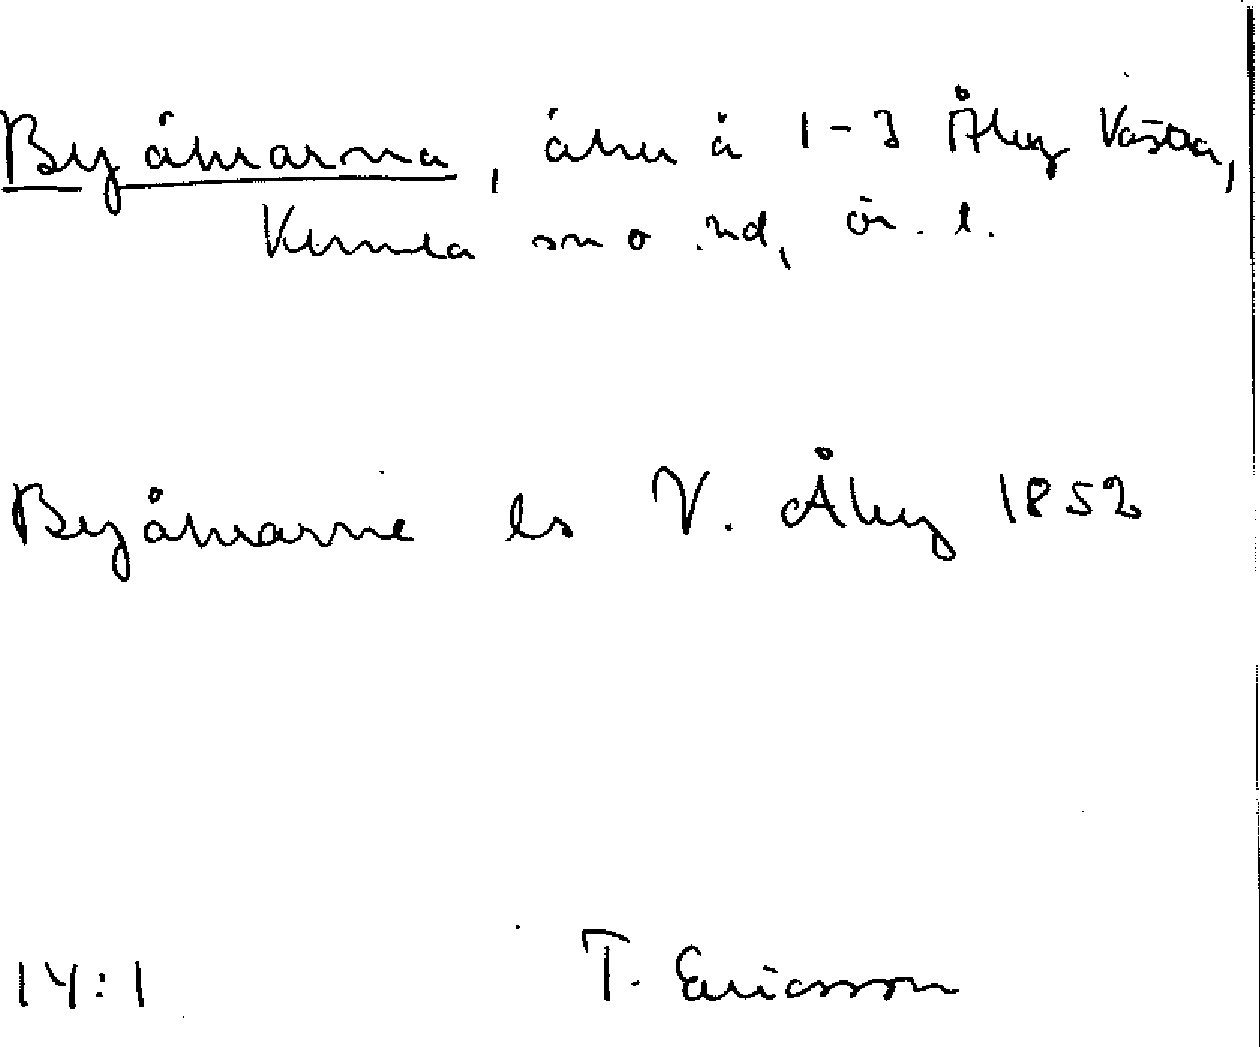 Byåkrarna, åker å 1-3 Åby Västra,
Kumla sn o. hd, ör. l.
Byåkrarne ls V. Åby 1852
14:1 T. Ericsson